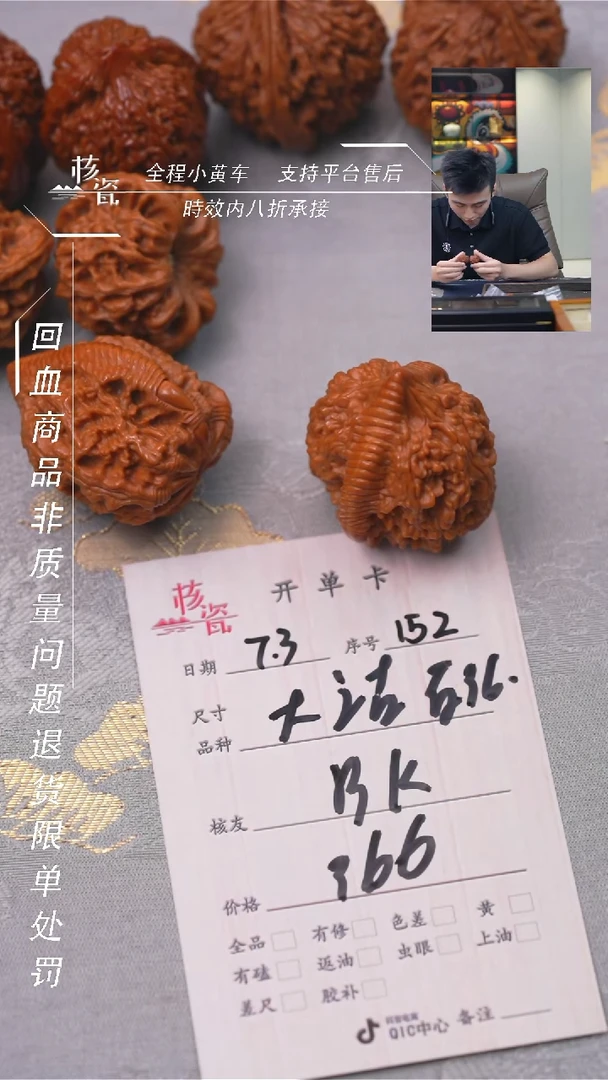 核瓷
全程小黄车 支持平台售后
時效内八折承接
回血商品非质量问题退货限单处罚
核瓷
开单卡
日期 7.3 序号 152
尺寸
品种
核友 BK
价格 366
全品 有修 色差 黄
有磕 返油 虫眼 上油
差尺 胶补
抖音电商
QIC中心 备注